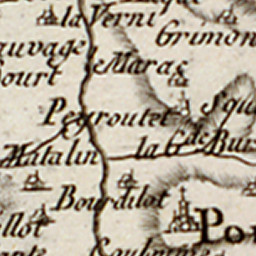 la Verni
Grimon
auvage
le Maras
ourt
Peyroutet
Squ
Matalin
la Gde Bur
Bourdilot
illot
Po